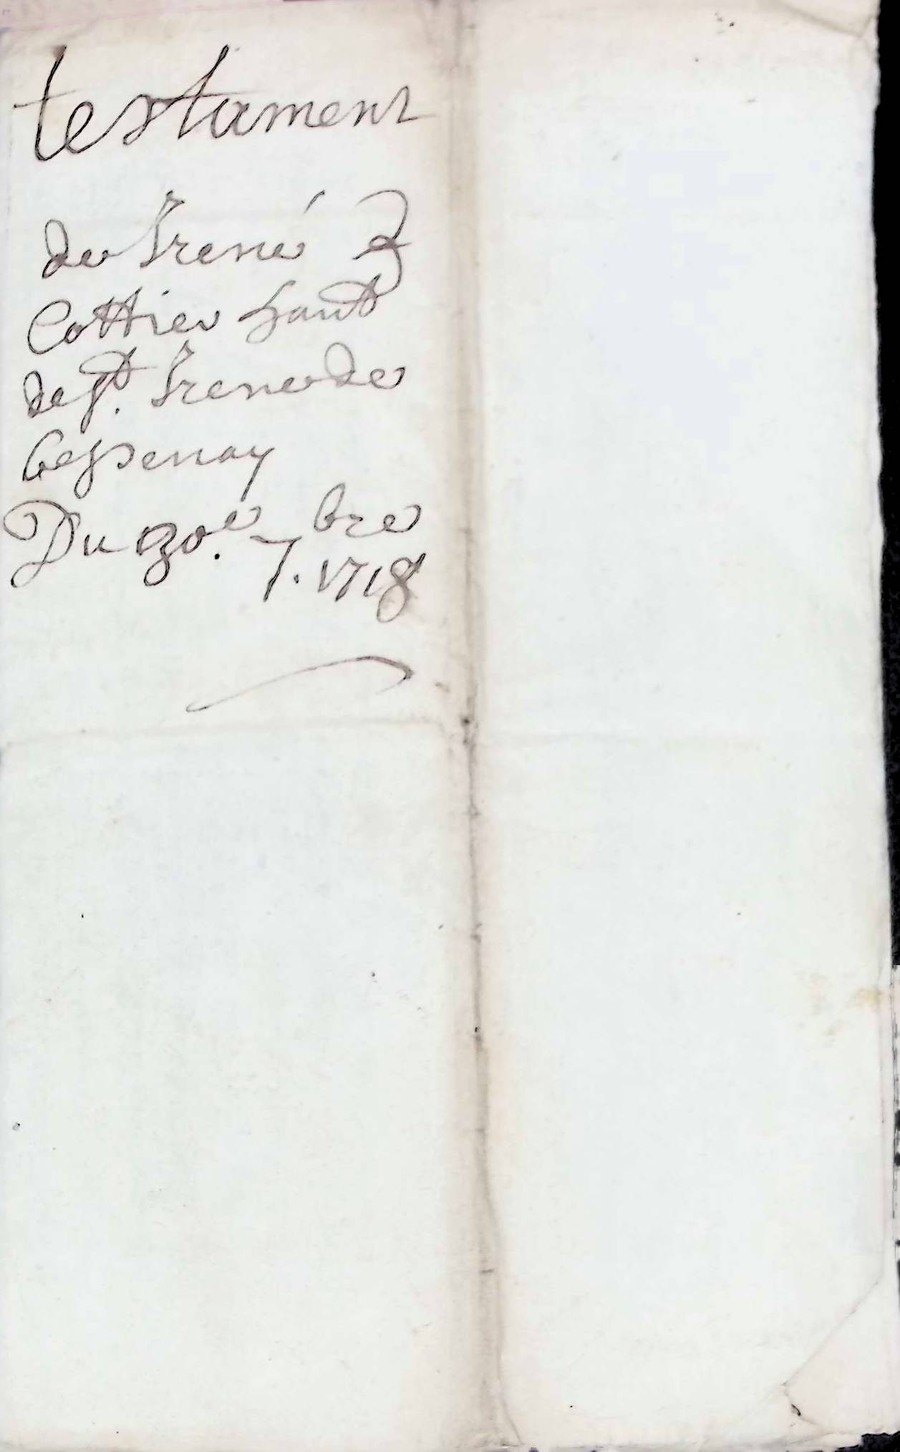 testament
de Irené
Cottier hant
de st. Irené de
Bessenay
Du 30e. 7bre
1718